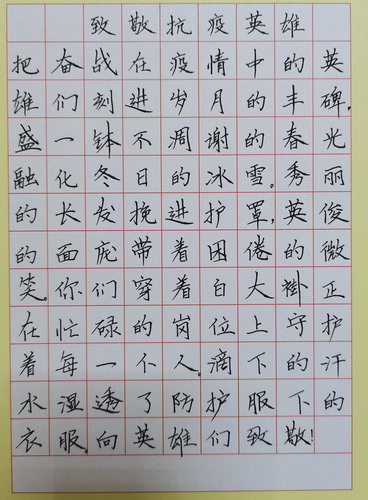 致敬抗疫英雄
把奋战在疫情中的英
雄们刻进岁月的丰碑。
盛一钵不凋谢的春光
融化冬日的冰雪。秀丽
的长发挽进护罩,英俊
的面庞带着困倦的微
笑。你们穿着白大褂正
在忙碌的岗位上守护
着每一个人。滴下的汗
水湿透了防护服下的
衣服。向英雄们致敬!